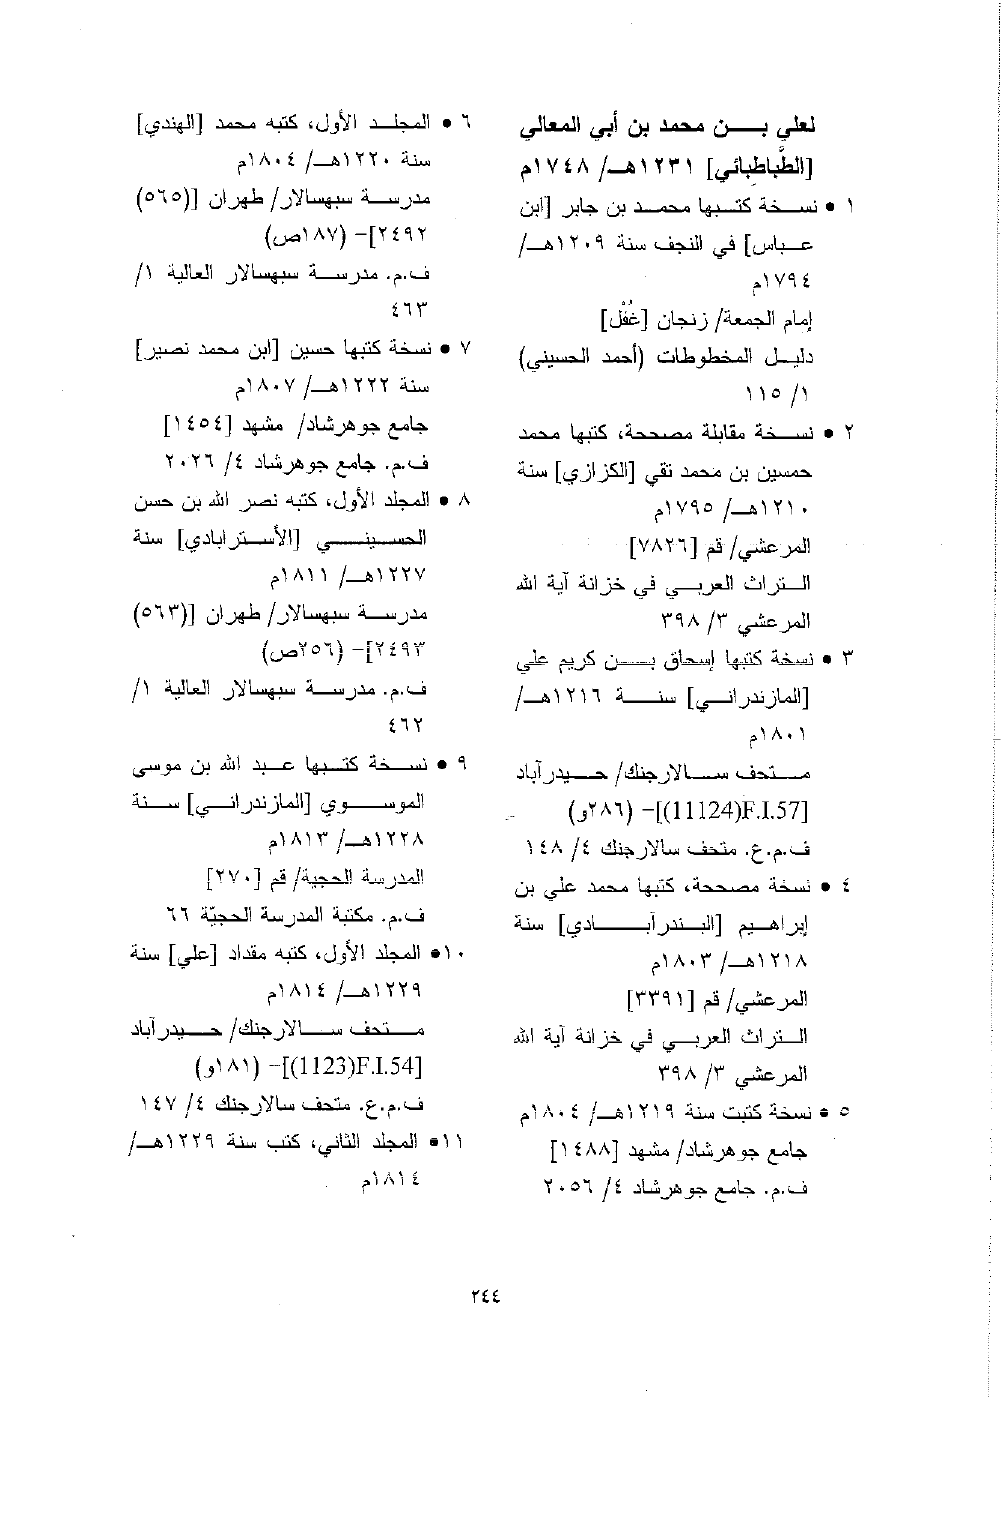 لعلي بن محمد بن أبي المعالي
[الطَّباطبائي] ١٢٣١هـ/ ١٧٤٨م
١ • نسخة كتبها محمد بن جابر [ابن
عباس] في النجف سنة ١٢٠٩هـ/
١٧٩٤م
إمام الجمعة/ زنجان [غُفْل]
دليل المخطوطات (أحمد الحسيني)
١/ ١١٥
٢ • نسخة مقابلة مصححة، كتبها محمد
حمسين بن محمد نقي [الكزازي] سنة
١٢١٠هـ/ ١٧٩٥م
المرعشي/ قم [٧٨٢٦]
التراث العربي في خزانة آية الله
المرعشي ٣/ ٣٩٨
٣ • نسخة كتبها إسحاق بن كريم علي
[المازندراني] سنة ١٢١٦هـ/
١٨٠١م
متحف سالارجنك/ حيدرآباد
[11124)F.I.57)]- (٢٨٦و)
ف.م.ع. متحف سالارجنك ٤/ ١٤٨
٤ • نسخة مصححة، كتبها محمد علي بن
إبراهيم [البندرآبادي] سنة
١٢١٨هـ/ ١٨٠٣م
المرعشي/ قم [٣٣٩١]
التراث العربي في خزانة آية الله
المرعشي ٣/ ٣٩٨
٥ • نسخة كتبت سنة ١٢١٩هـ/ ١٨٠٤م
جامع جوهرشاد/ مشهد [١٤٨٨]
ف.م. جامع جوهرشاد ٤/ ٢٠٥٦
٦ • المجلد الأول، كتبه محمد [الهندي]
سنة ١٢٢٠هـ/ ١٨٠٤م
مدرسة سبهسالار/ طهران [(٥٦٥)
٢٤٩٢]- (١٨٧ص)
ف.م. مدرسة سبهسالار العالية ١/
٤٦٣
٧ • نسخة كتبها حسين [ابن محمد نصير]
سنة ١٢٢٢هـ/ ١٨٠٧م
جامع جوهرشاد/ مشهد [١٤٥٤]
ف.م. جامع جوهرشاد ٤/ ٢٠٢٦
٨ • المجلد الأول، كتبه نصر الله بن حسن
الحسيني [الأسترابادي] سنة
١٢٢٧هـ/ ١٨١١م
مدرسة سبهسالار/ طهران [(٥٦٣)
٢٤٩٣]- (٢٥٦ص)
ف.م. مدرسة سبهسالار العالية ١/
٤٦٢
٩ • نسخة كتبها عبد الله بن موسى
الموسوي [المازندراني] سنة
١٢٢٨هـ/ ١٨١٣م
المدرسة الحجية/ قم [٢٧٠]
ف.م. مكتبة المدرسة الحجيّة ٦٦
١٠• المجلد الأول، كتبه مقداد [علي] سنة
١٢٢٩هـ/ ١٨١٤م
متحف سالارجنك/ حيدرآباد
[1123)F.I.54)]- (١٨١و)
ف.م.ع. متحف سالارجنك ٤/ ١٤٧
١١• المجلد الثاني، كتب سنة ١٢٢٩هـ/
١٨١٤م
٢٤٤